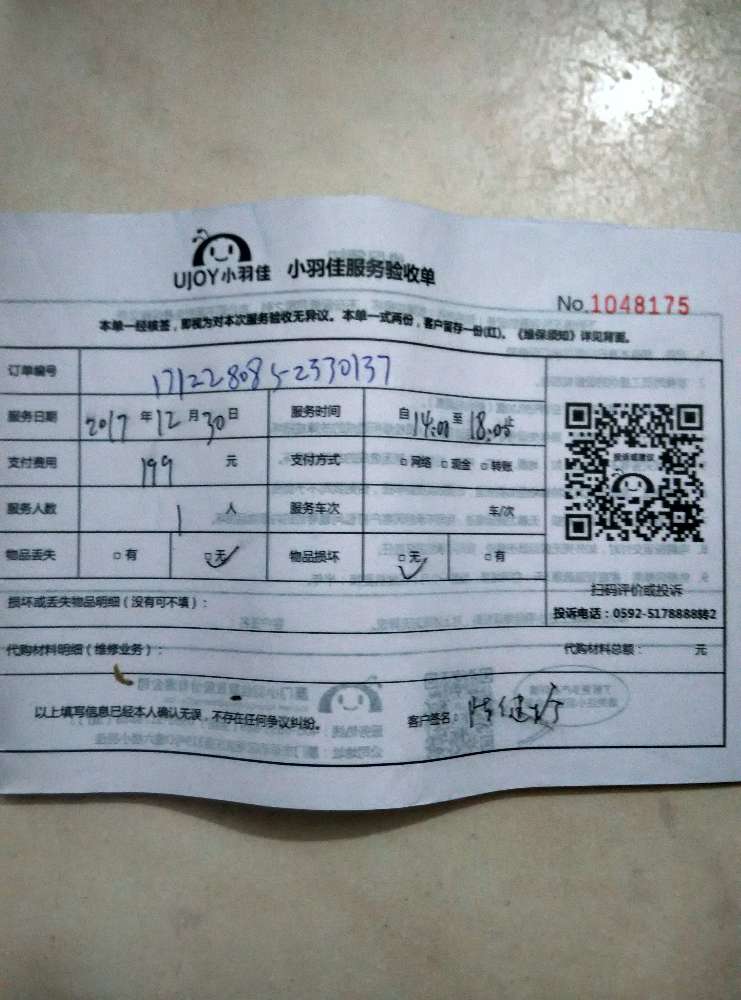 UJOY小羽佳 小羽佳服务验收单
No.1048175
本单一经核签，即视为对本次服务验收无异议。本单一式两份，客户留存一份(红)。《维保须知》详见背面。
订单编号 171228085-2330137
服务日期 2017 年 12 月 30 日 服务时间 自 14:00 至 18:00 止
支付费用 199 元 支付方式 □网络 □现金 □转账
服务人数 1 人 服务车次 车/次
物品丢失 □有 □无 物品损坏 □无 □有
投诉或建议
扫码评价或投诉
投诉电话：0592-5178888转2
损坏或丢失物品明细（没有可不填）：
代购材料明细（维修业务）： 代购材料总额： 元
以上填写信息已经本人确认无误，不存在任何争议纠纷。 客户签名：